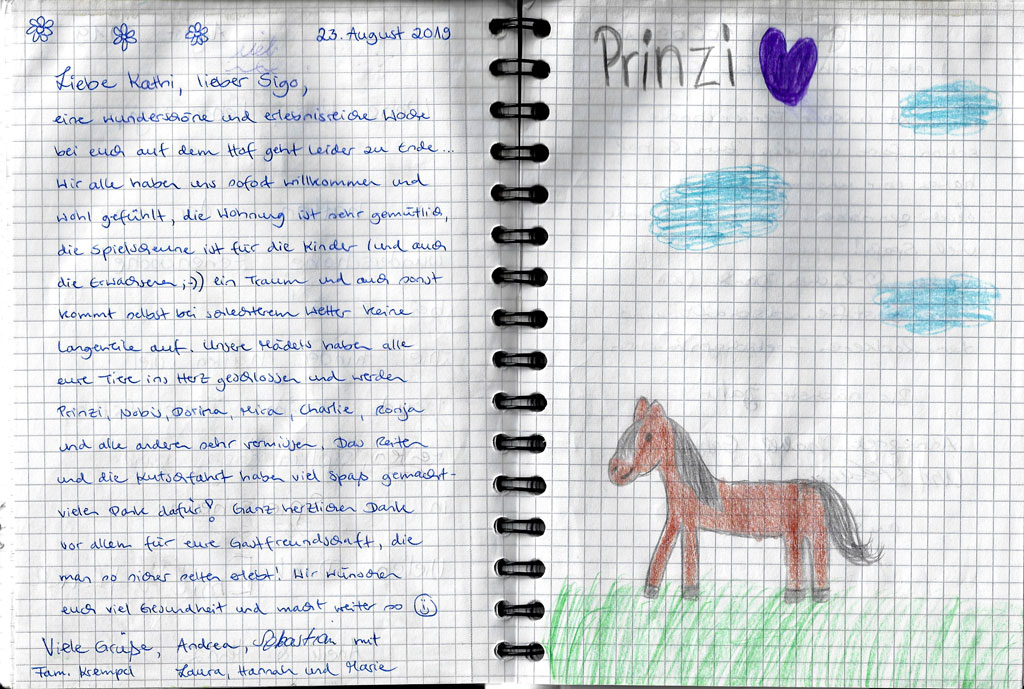 23. August 2019
Liebe Kathi, lieber Sigo,
eine wunderschöne und erlebnisreiche Woche
bei euch auf dem Hof geht leider zu Ende...
Wir alle haben uns sofort willkommen und
wohl gefühlt, die Wohnung ist sehr gemütlich,
die Spielscheune ist für die Kinder (und auch
die Erwachsenen ;-)) ein Traum und auch sonst
kommt selbst bei schlechterem Wetter keine
Langeweile auf. Unsere Mädels haben alle
eure Tiere ins Herz geschlossen und werden
Prinzi, Nobis, Dorina, Mira, Charlie, Ronja
und alle anderen sehr vermissen. Das Reiten
und die Kutschfahrt haben viel Spaß gemacht -
vielen Dank dafür! Ganz herzlichen Dank
vor allem für eure Gastfreundschaft, die
man so sicher selten erlebt! Wir wünschen
euch viel Gesundheit und macht weiter so
Viele Grüße, Andrea, Sebastian mit
Fam. Krempel Laura, Hannah und Marie
Prinzi